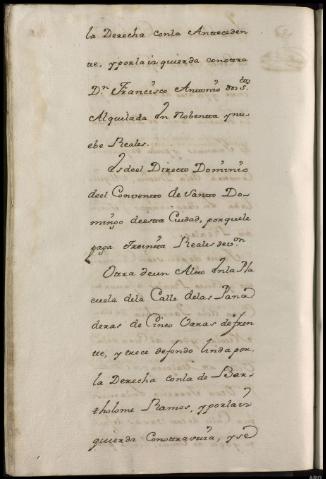 la Derecha conla Anteceden
te, y porla izquierda con otra
Dn. Francisco Antonio
Alquilada En Nobenta y nu
ebe Reales.
Es deel Directo Dominio
deel Convento de Santo Do
mingo deesta Ciudad, porquele
paga Treinta Reales de vn.
Otra deun Alto En la Pla
zuela dela Calle delas Pana
deras de Cinco Varas defren
te, y trece defondo linda por
la Derecha conla de Bar
tholome Ramos, y porla iz
quierda Conotra suia, y se